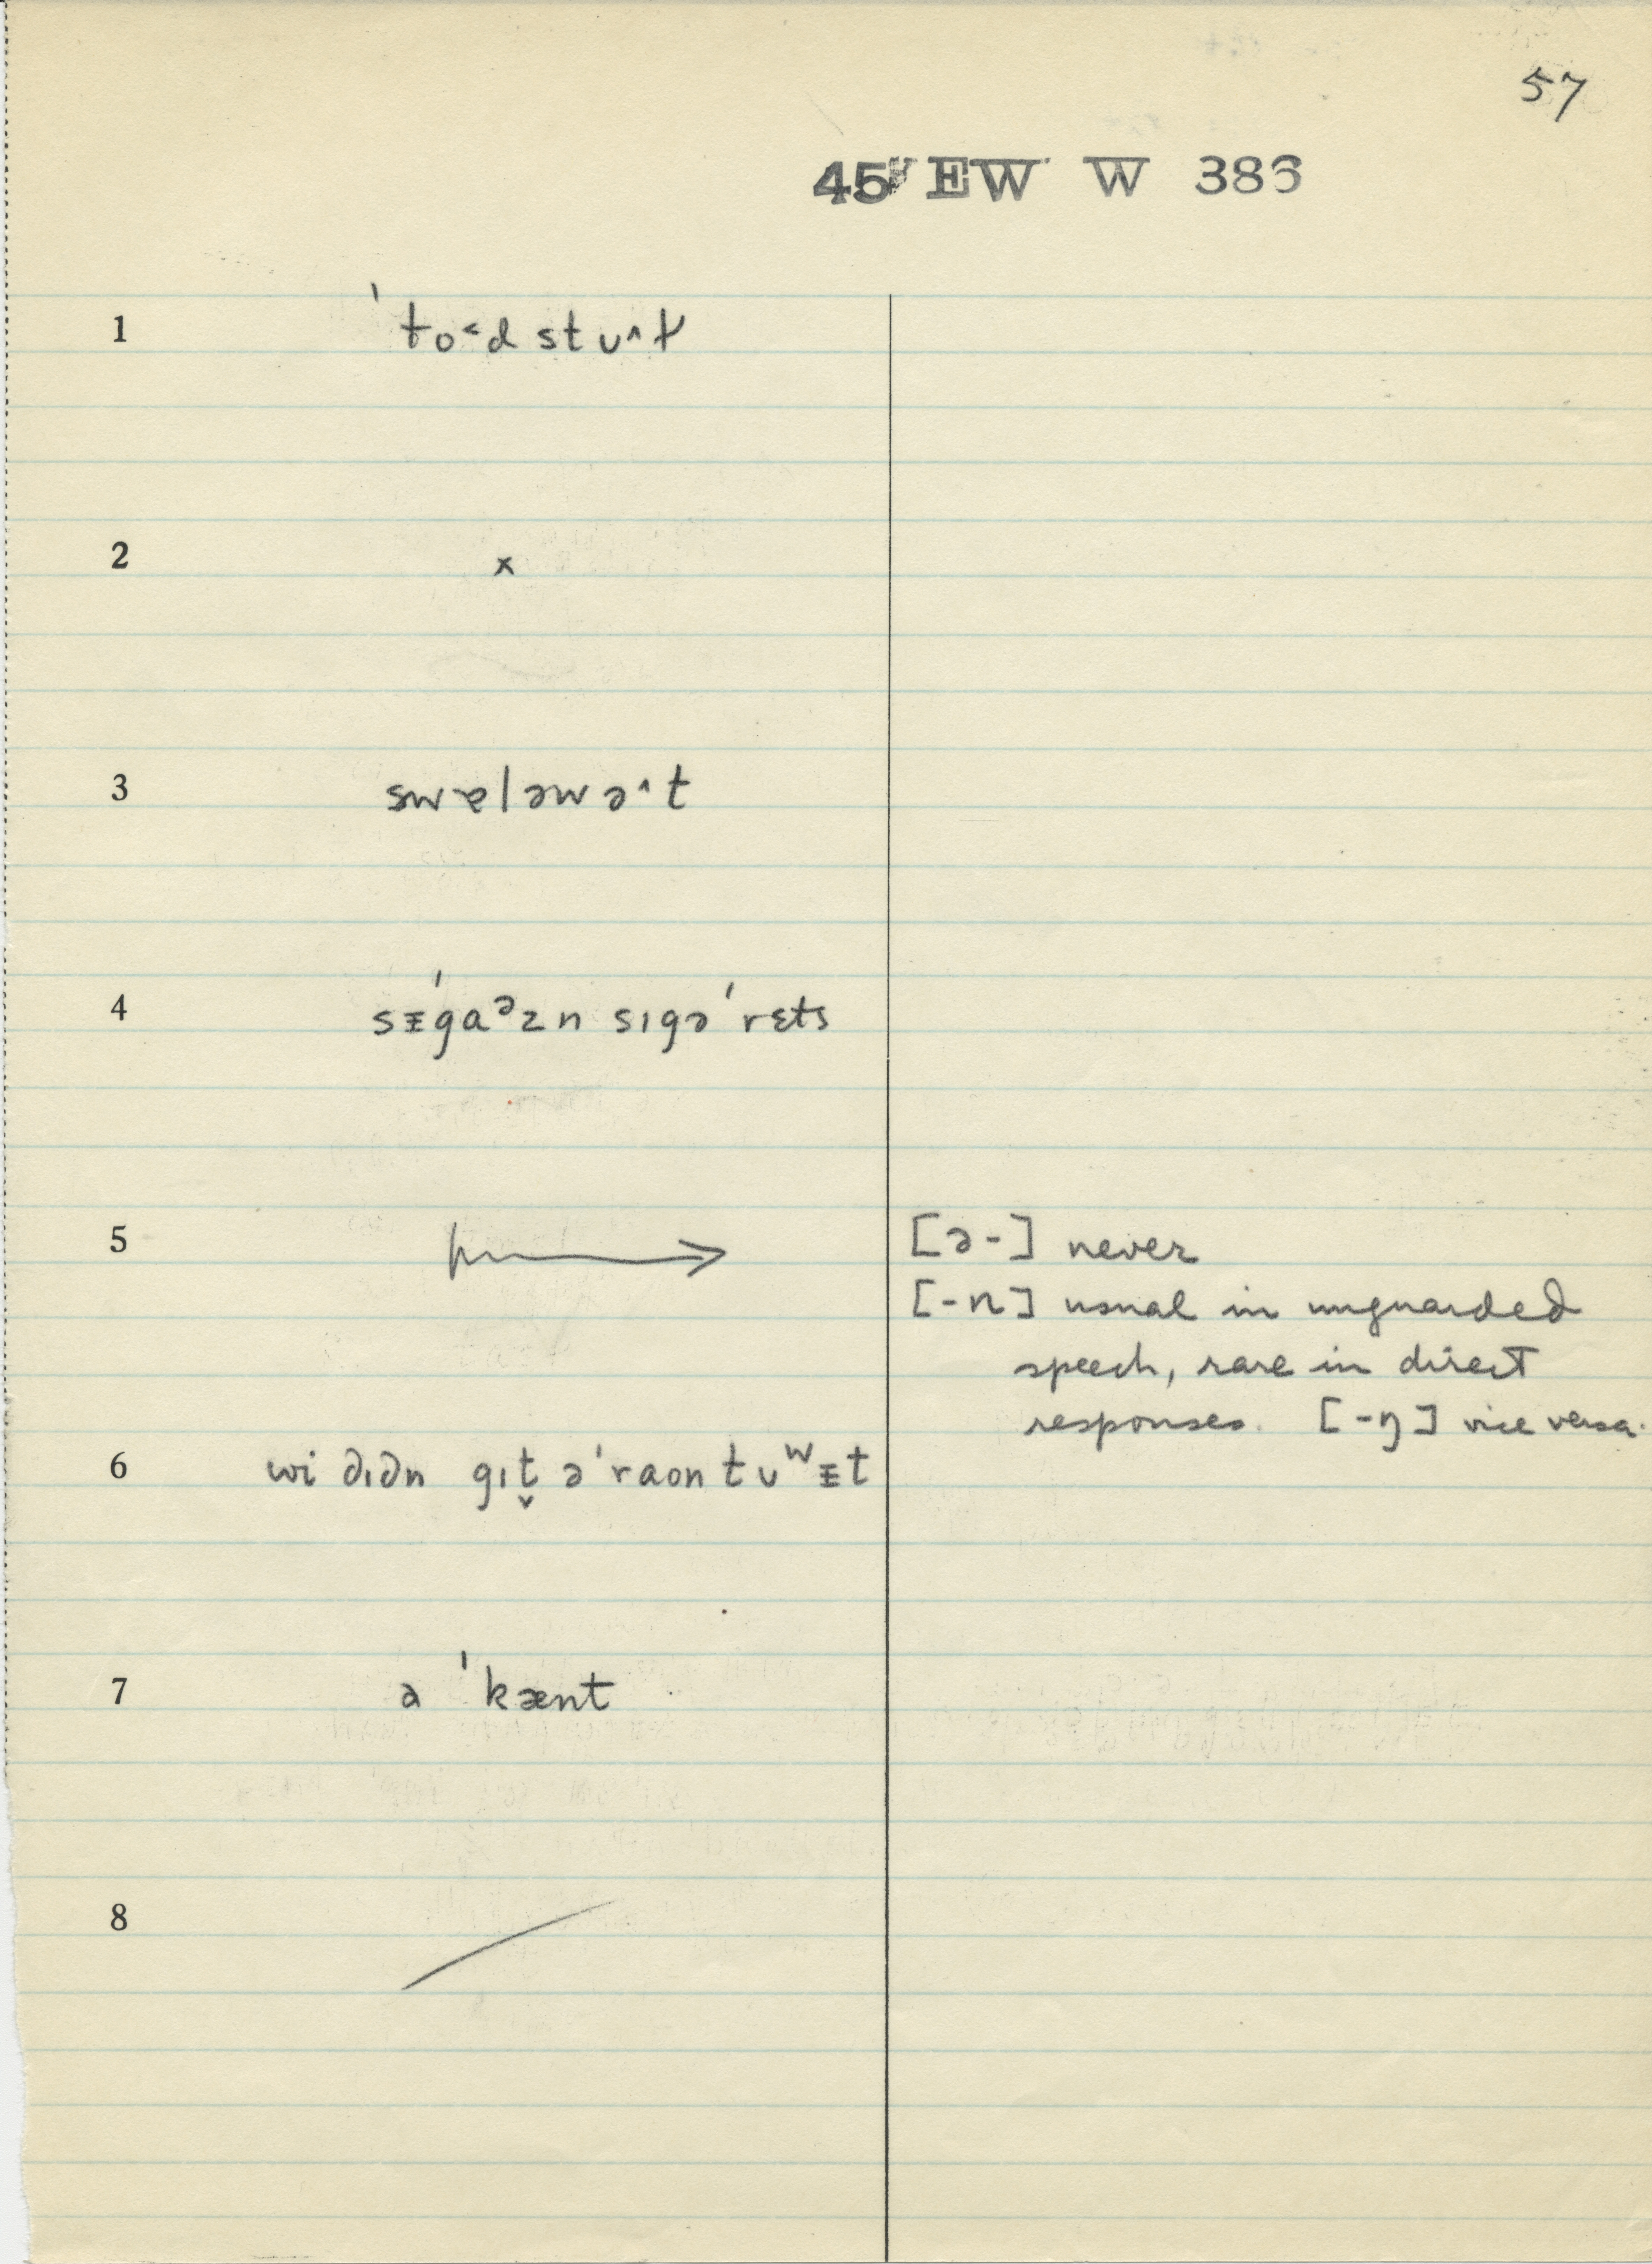 57
45 EW W 386
1 ˈto˂d stʊ^l
2 x
3 swɐləwə^t
4 sᵻ́gaᵊzn sɪgəˈrɛts
5 → [ə-] never
[-n] usual in unguarded
speech, rare in direct
responses. [-ŋ] vice versa.
6 wi dɪdn gɪt̬ əˈraon tʊʷᵻt
7 a ˈkænt
8 /